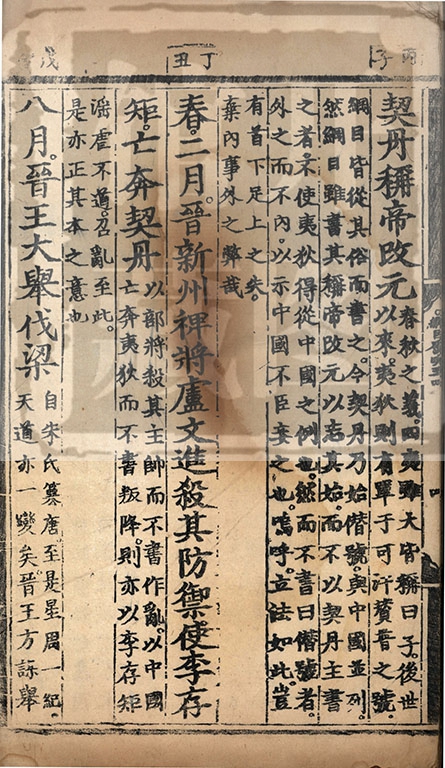 丙子
丁丑
戊
契丹稱帝改元
春秋之義四夷雖大皆稱曰子後世
以來夷狄則有單于可汗贊普之號
綱目皆從其俗而書之今契丹乃始僭號與中國並列
然綱目雖書其稱帝改元以志其始而不以契丹主書
之者不使夷狄得從中國之例也然而不書曰僭號者
外之而不內以示中國不臣妾之也嗚呼立法如此豈
有首下足上之失
棄內事外之弊哉
春二月晉新州裨將盧文進殺其防禦使李存
矩亡奔契丹
以部將殺其主帥而不書作亂以中國
亡奔夷狄而不書叛降則亦以李存矩
淫虐不道召亂至此
是亦正其本之意也
八月晉王大舉伐梁
自朱氏篡唐至是星周一紀
天道亦一變矣晉王方謀舉